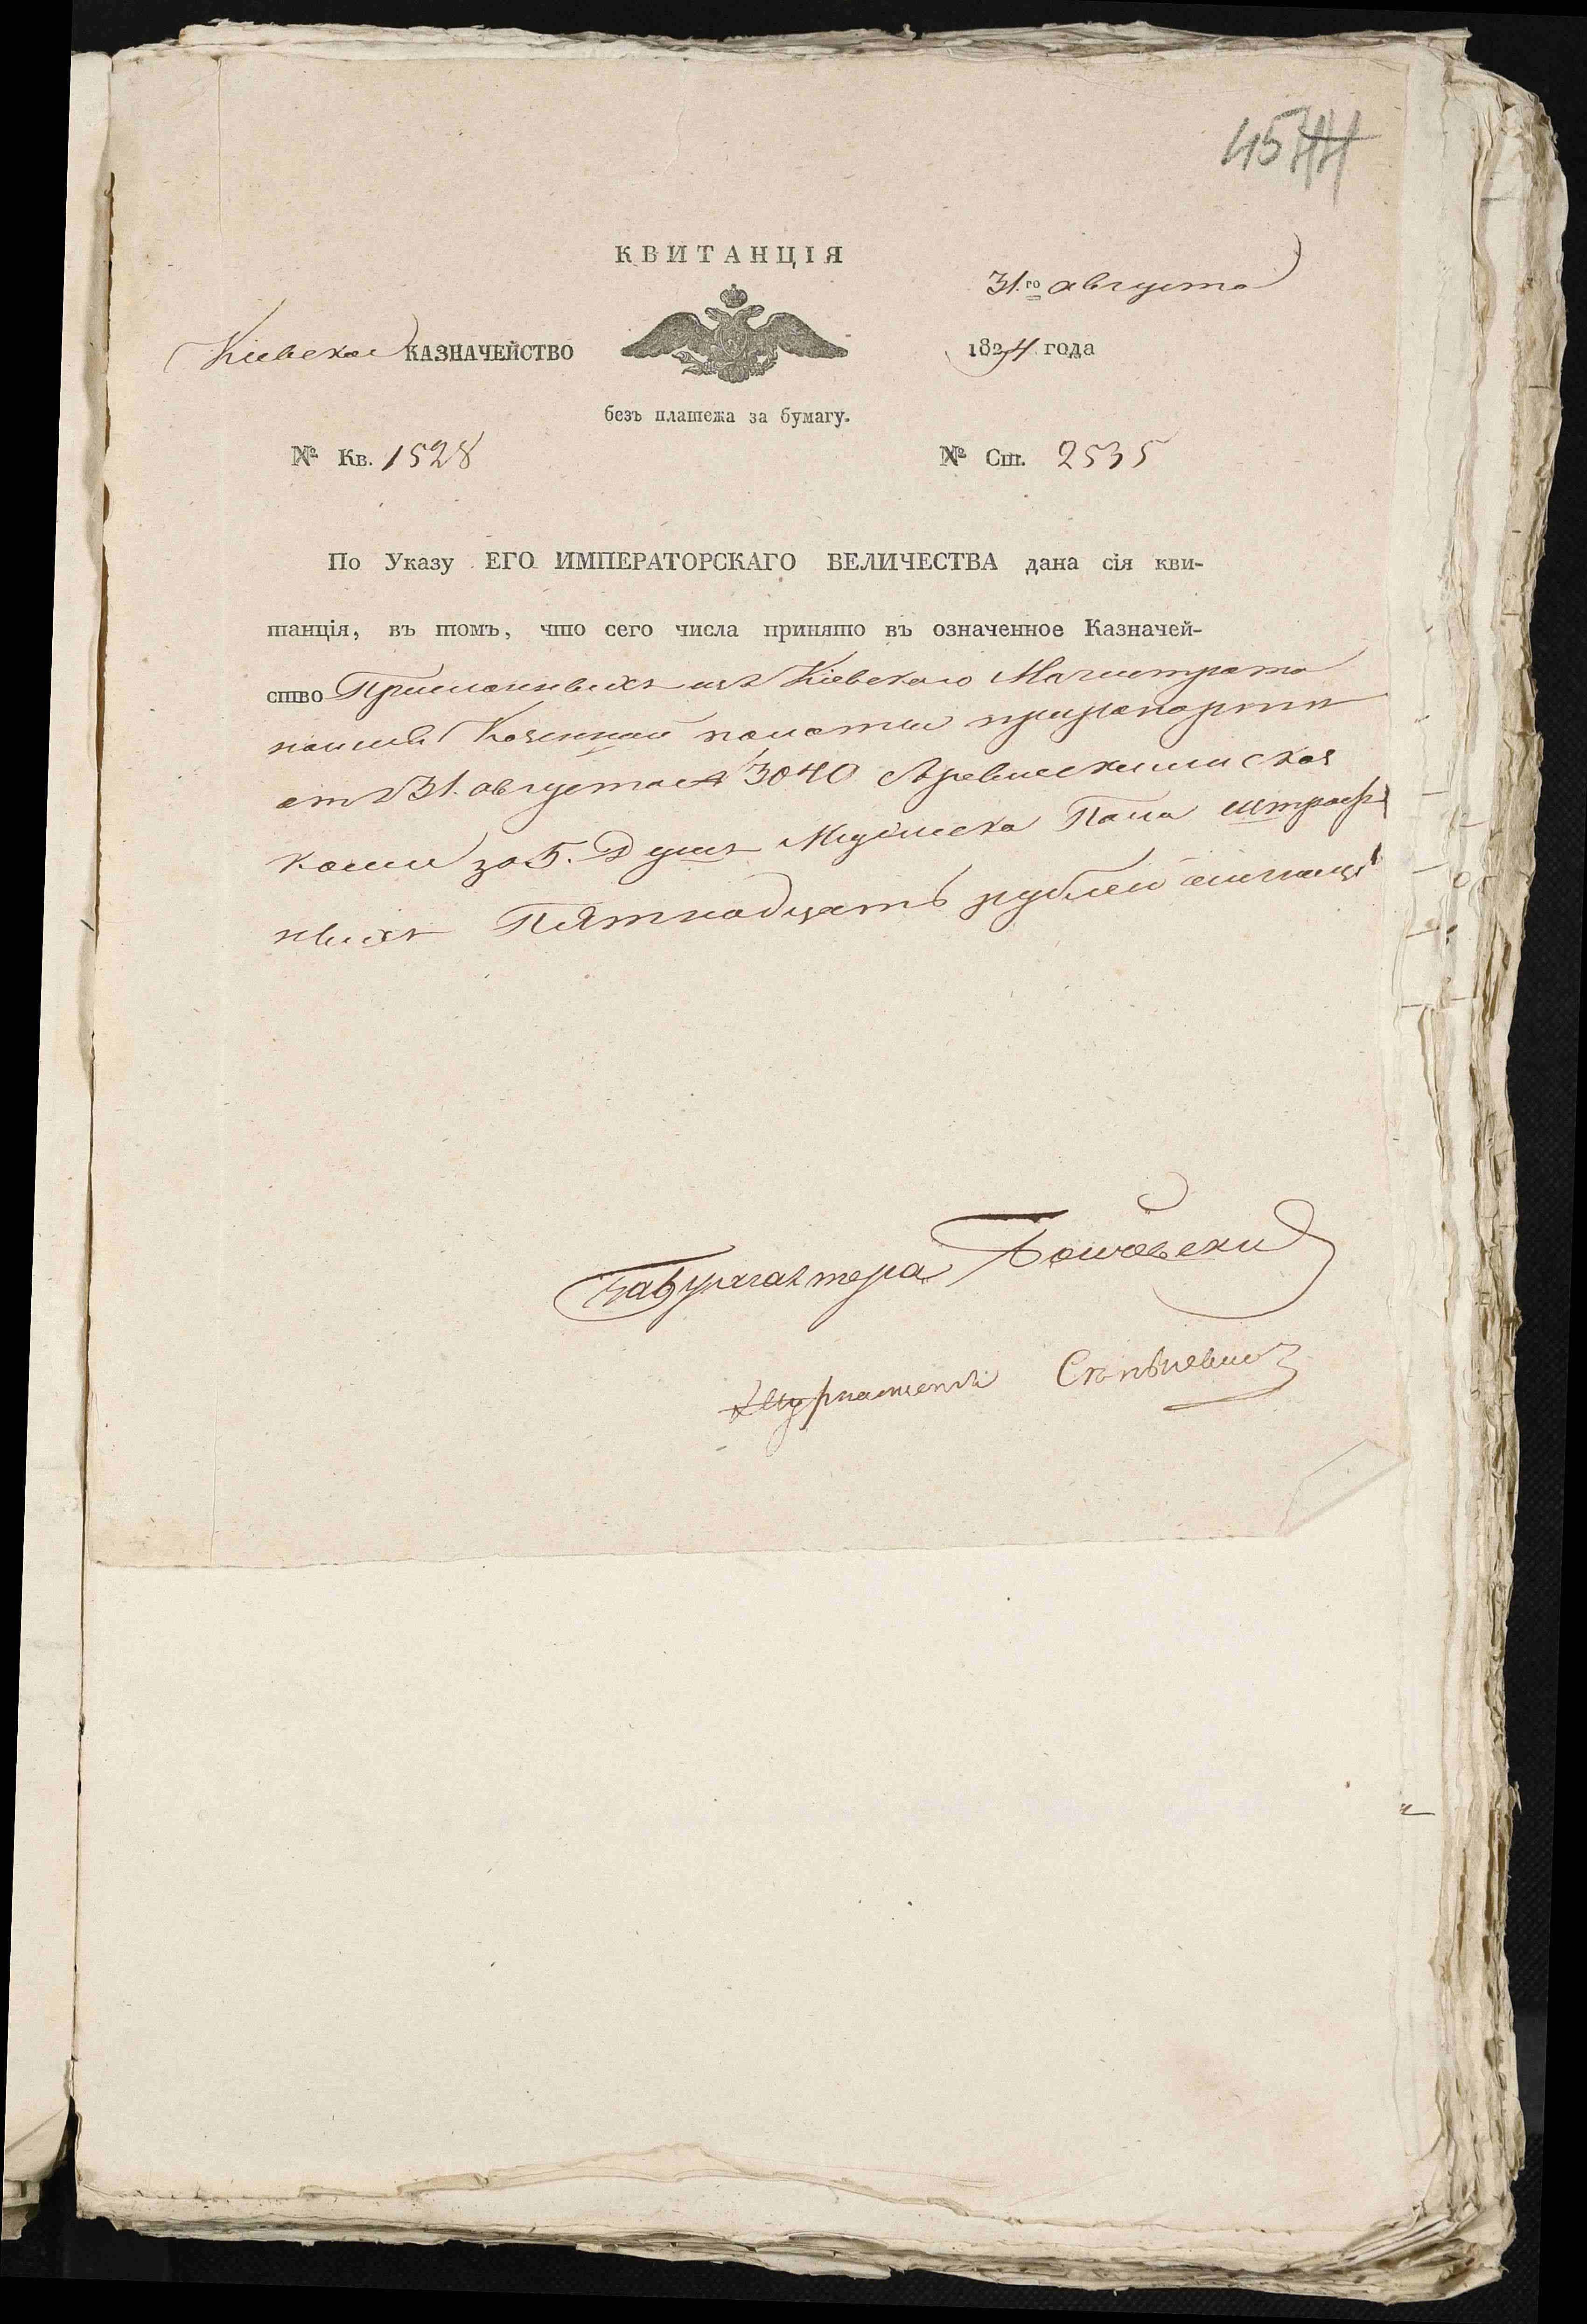 45 44
КВИТАНЦІЯ
31.го августа
Кіевское КАЗНАЧЕЙСТВО
1824 года
безъ платежа за бумагу.
№ Кв. 1528
№ Ст. 2535
По Указу ЕГО ИМПЕРАТОРСКАГО ВЕЛИЧЕСТВА дана сія кви-
танція, въ томъ, что сего числа принято въ означенное Казначей-
ство Присланныхъ изъ Кіевскаго Магистрата
Казенной палаты при рапорте
отъ 31. августа 3040 съ ревискими сказ
ками за 5. Душъ Мужеска Пола штраф
ныхъ Пятнадцать рублей
За Бухгалтера
Журналистъ